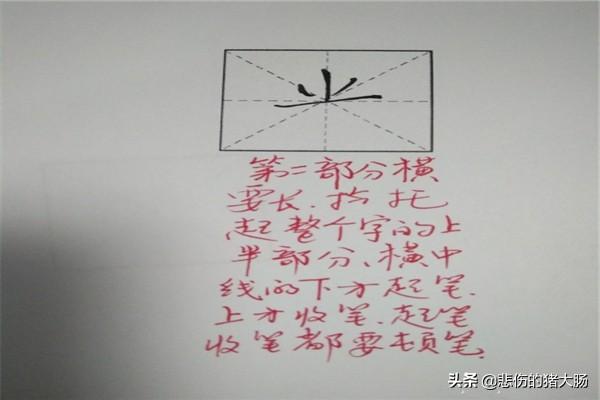 第二部分横
要长、托
起整个字的上
半部分、横中
线的下方起笔.
上方收笔.起笔
收笔都要顿笔.
头条 @悲伤的猪大肠